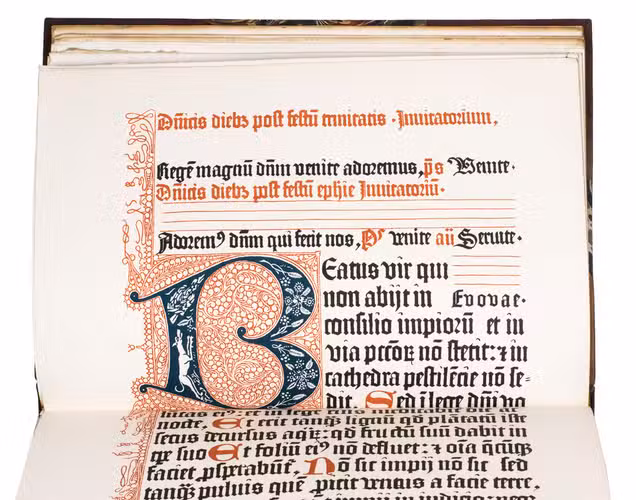 Dn̄icis diebꝫ post festū trinitatis · Inuitatorium,
Regē magnū dn̄m venite adoremus, p̄s Uenite·
Dn̄icis diebꝫ post festū ephie Inuitatoriū·
Adoremꝰ dn̄m qui fecit nos, Ps venite an̄ Seruite·
Beatus vir qui
non abijt in Evovae·
consilio impiorū et in
via pctōꝝ nō stetit: ⁊ in
cathedra pestilētie nō se-
dit, Sed ī lege dn̄i vo
nocte, Et erit tanqꝫ lignū qd̓ plātatū est
secus decursus aqꝝ: qd̓ fructū suū dabit in
tpe suo Et foliū eiꝰ nō defluet: ⁊ oīa q̄cūqꝫ
faciet ꝓsperabūt, Nō sic impij nō sic sed
tanqꝫ puluis quē proicit ventus a facie terre,